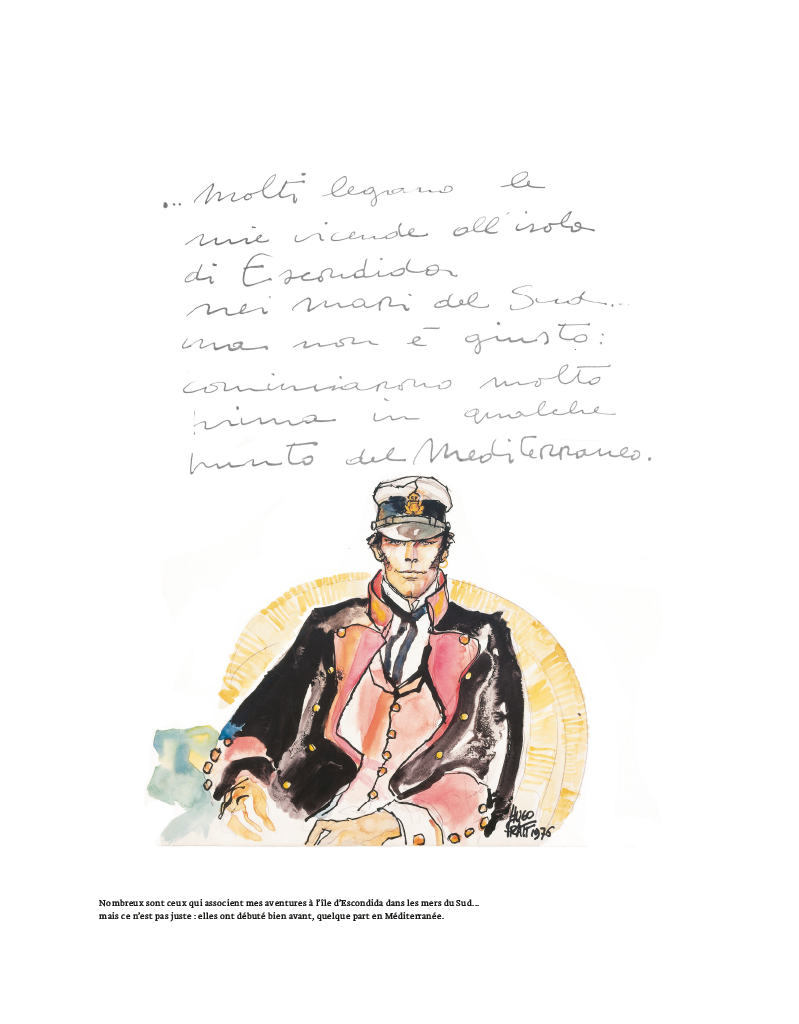 ... molti legano le
mie vicende all'isola
di Escondida
nei mari del Sud...
ma non è giusto:
cominciarono molto
prima in qualche
punto del Mediterraneo.
HUGO
PRATT 1976
Nombreux sont ceux qui associent mes aventures à l'île d'Escondida dans les mers du Sud...
mais ce n'est pas juste : elles ont débuté bien avant, quelque part en Méditerranée.